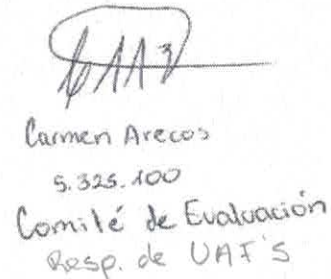 Carmen Arecos
5.325.100
Comité de Evaluación
Resp. de UAF'S